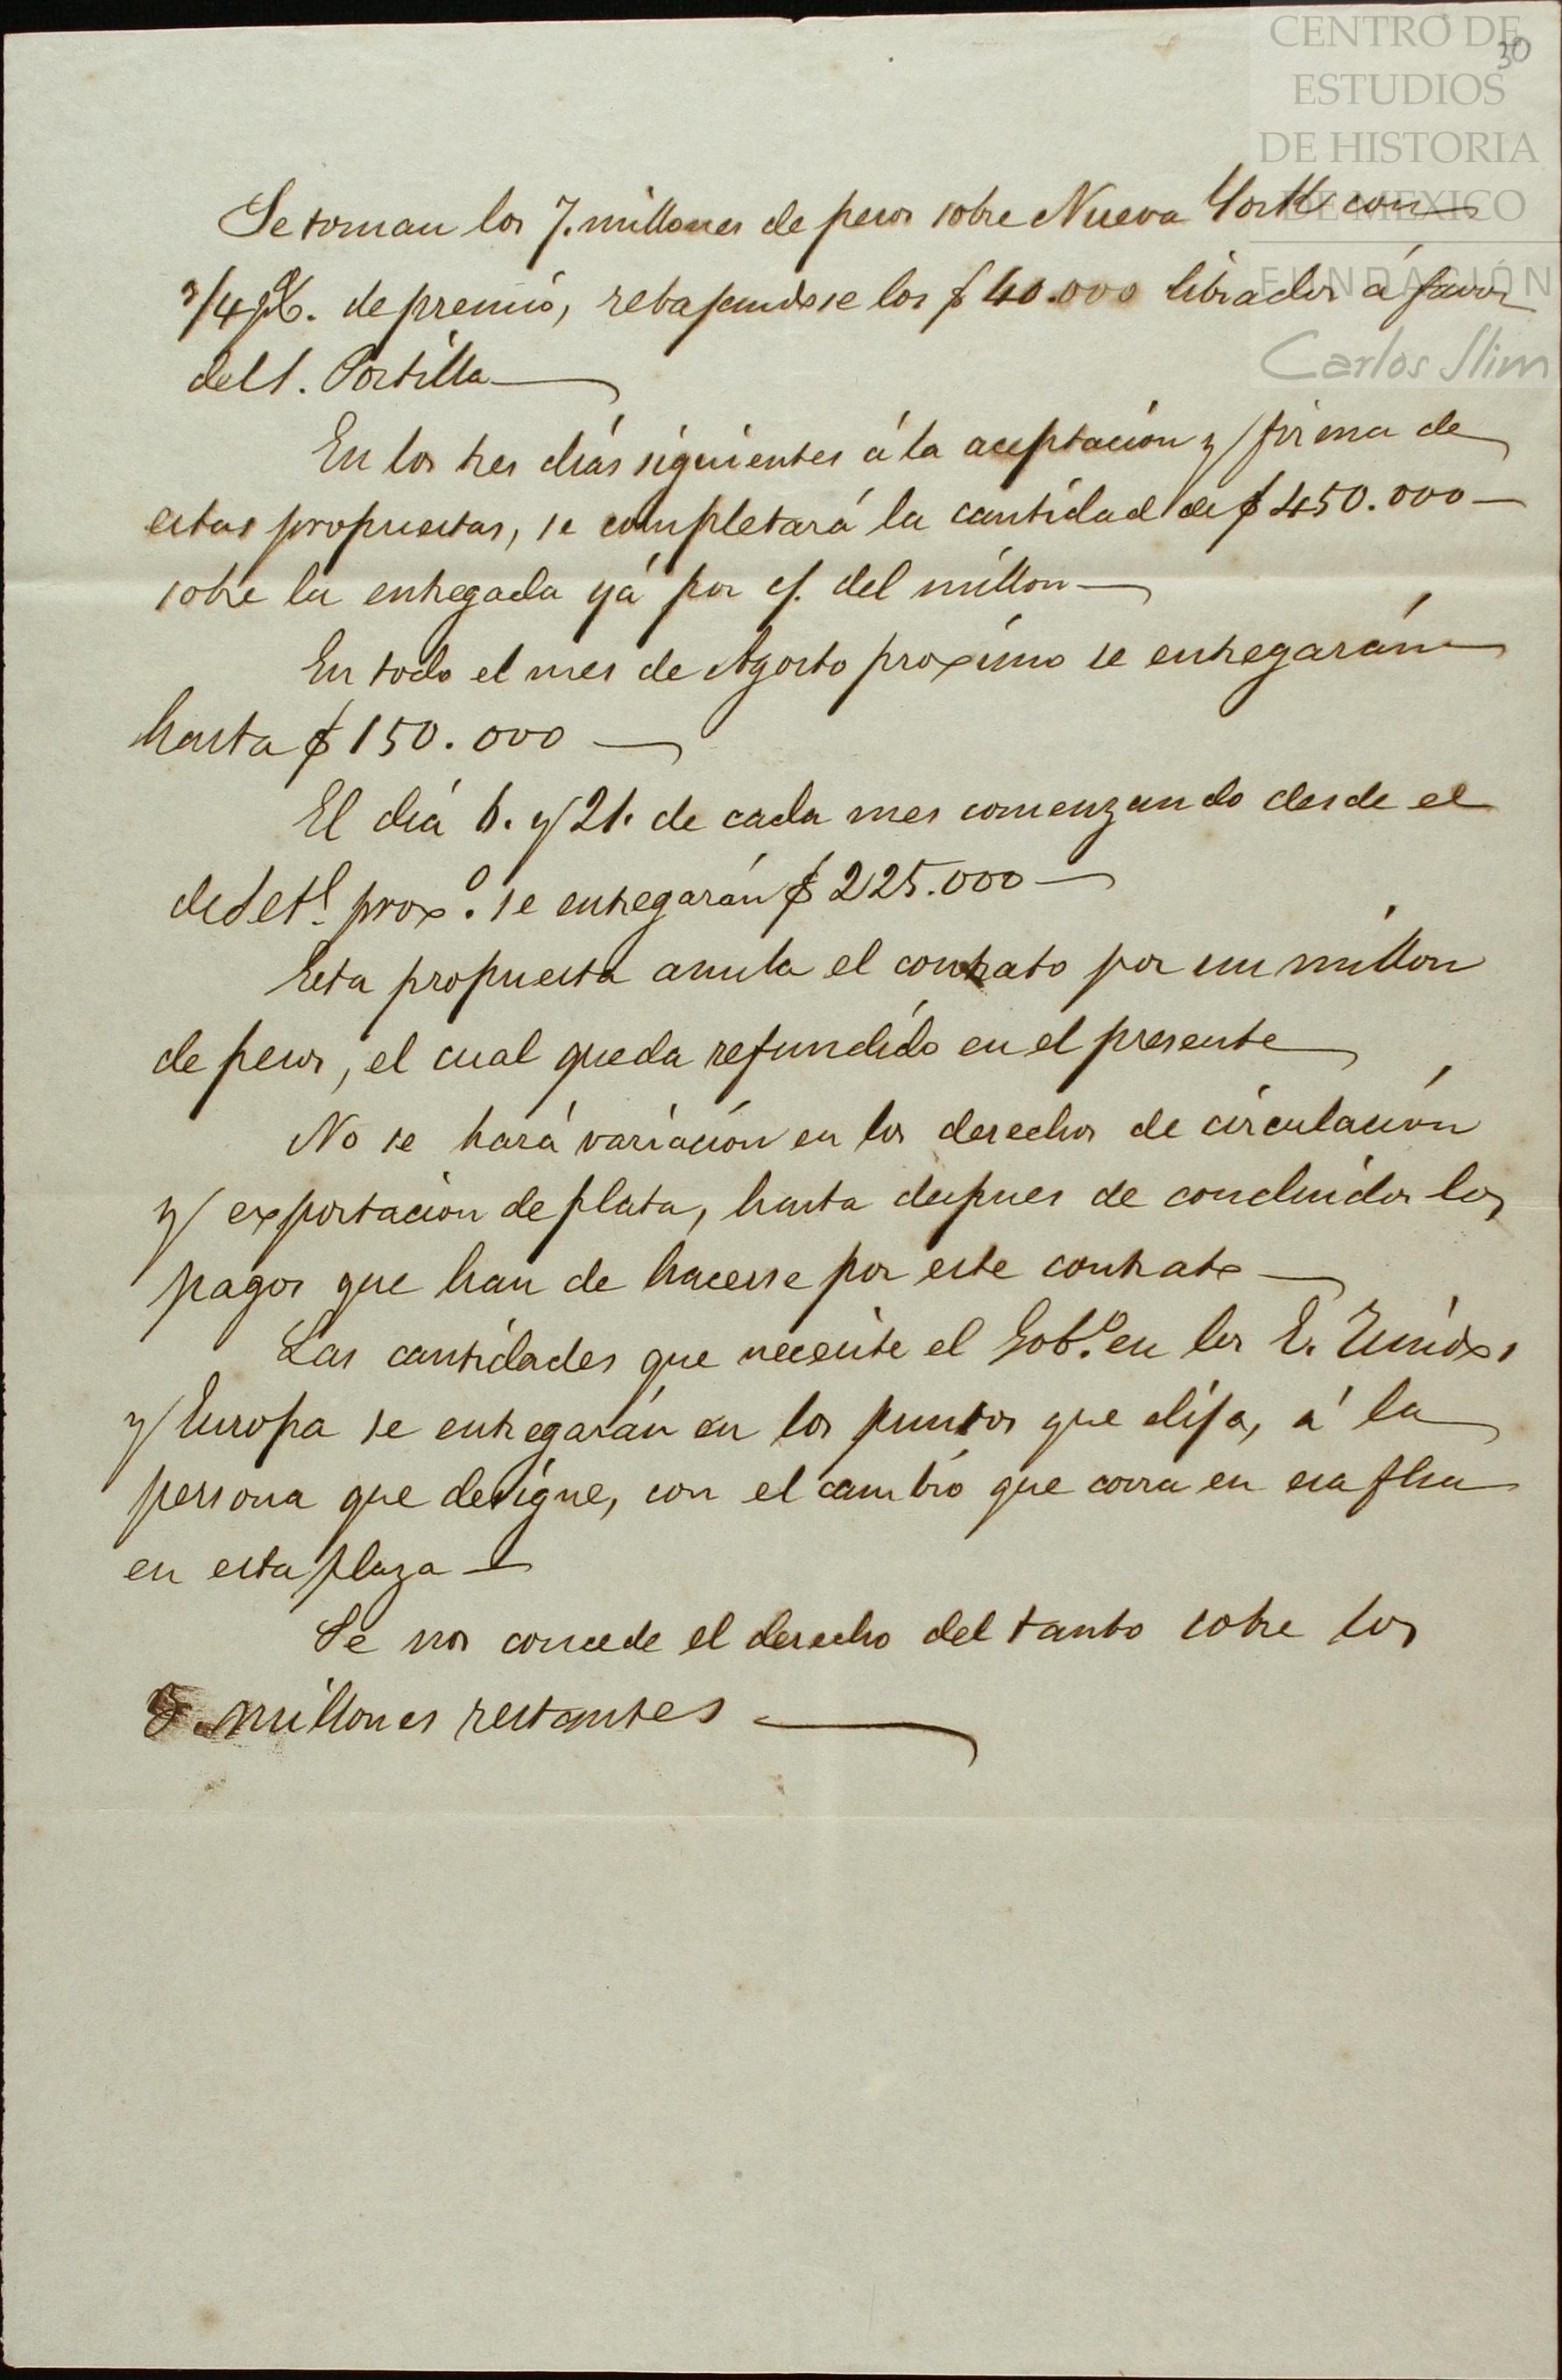 CENTRO DE
30
ESTUDIOS
DE HISTORIA
DE MEXICO
FUNDACIÓN
Carlos Slim
Se toman los 7. millones de pesos sobre Nueva York con
3/4 p%. de premio, rebajandose los $ 40.000 librados á favor
del S. Portilla
En los tres dias siguientes á la aceptación y firma de
estas propuestas, se completará la cantidad de $ 450.000
sobre la entregada yá por cf. del millon
En todo el mes de Agosto proximo se entregarán
hasta $ 150.000
El dia 6. y 21. de cada mes comenzando desde el
de Set.e prox.o se entregarán $ 225.000
Esta propuesta anula el contrato por un millon
de pesos, el cual queda refundido en el presente
No se hará variación en los derechos de circulación
y exportacion de plata, hasta despues de concluidos los
pagos que han de hacerse por este contrato
Las cantidades que necesite el Gob.o en los E. Unidos
y Europa se entregarán en los puntos que elija, á la
persona que designe, con el cambio que corra en esa fha
en esta plaza
Se nos concede el derecho del tanto sobre los
millones restantes